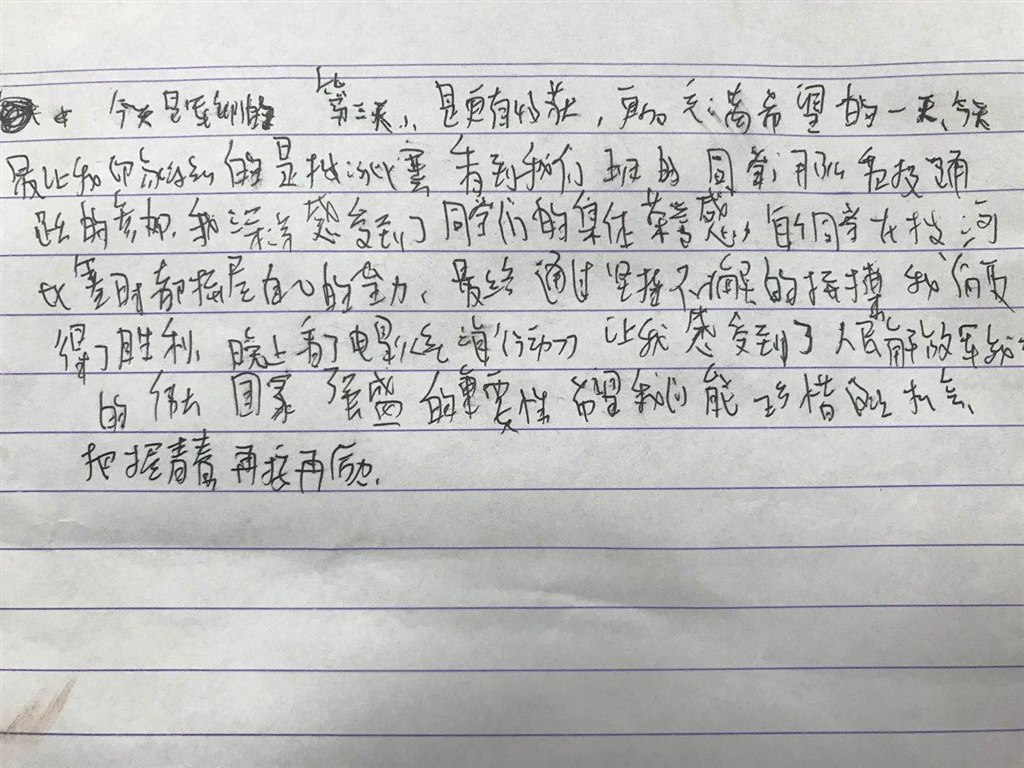 今天是军训的第三天,是更有收获,更加充满希望的一天,今天
最让我印象深刻的是拔河比赛 看到我们班的同学们那么积极踊
跃的参加,我深深感受到了同学们的集体荣誉感,每个同学在拔河
比赛时都拼尽自己的全力,最终通过坚持不懈的拼搏我们取
得了胜利,晚上看了电影红海行动 让我感受到了人民解放军
的伟大 国家强盛的重要性 希望我们能珍惜 机会,
把握青春 再接再励.